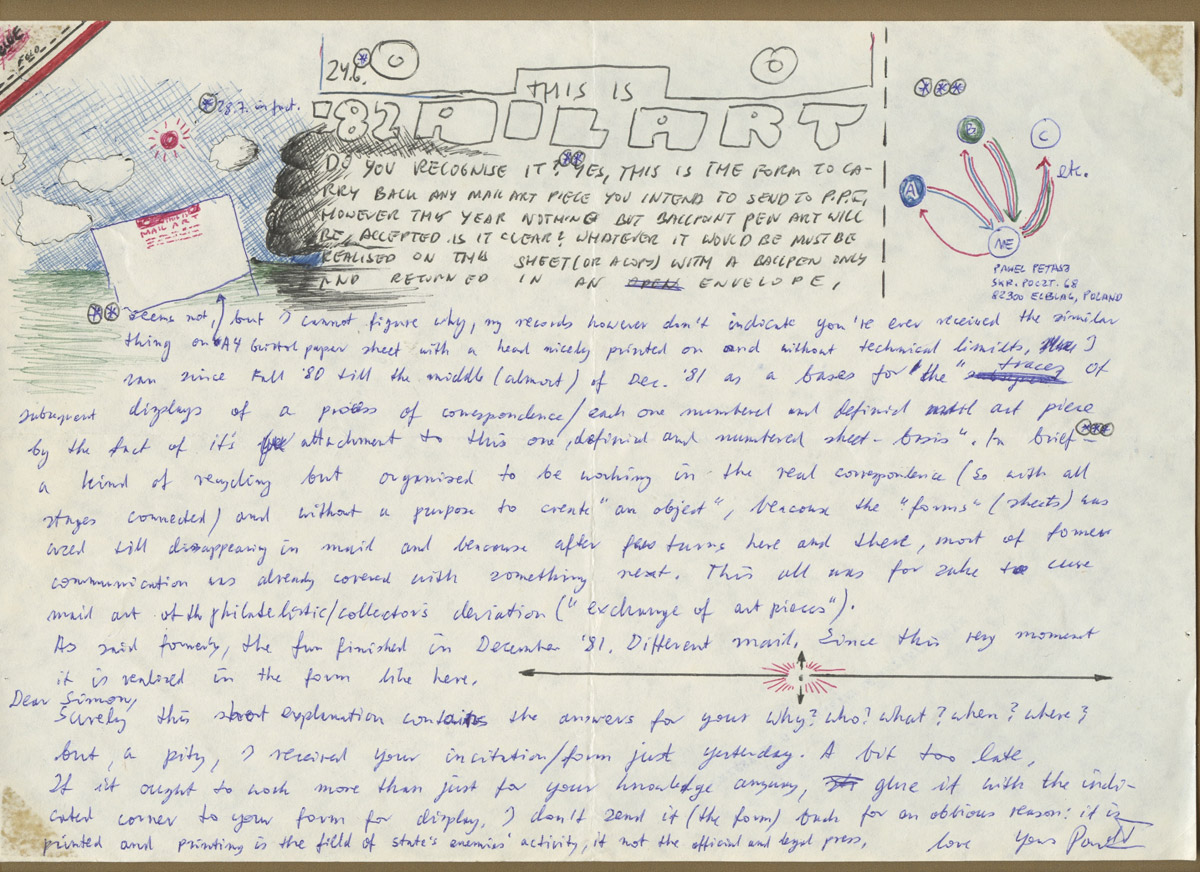 24.6.
28.7. in fact.
THIS IS
'82 AILART
DO YOU RECOGNISE IT? YES, THIS IS THE FORM TO CA-
RRY BACK ANY MAIL ART PIECE YOU INTEND TO SEND TO P.P.
HOWEVER THIS YEAR NOTHING BUT BALLPOINT PEN ART WILL
BE ACCEPTED. IS IT CLEAR? WHATEVER IT WOULD BE MUST BE
REALISED ON THIS SHEET (OR A COPY) WITH A BALLPEN ONLY
AND RETURNED IN AN OPEN ENVELOPE,
MAIL ART
A
B
C
etc.
ME
PAWEL PETASZ
SKR. POCZT. 68
82300 ELBLAG, POLAND
Seems not, but I cannot figure why, my records however don't indicate you've ever received the similar
thing on A4 bristol paper sheet with a head nicely printed on and without technical limits, I
ran since Fall '80 till the middle (almost) of Dec. '81 as a bases for "the traces of
subsequent displays of a process of correspondence/each one numbered and definied art piece
by the fact of it's attachment to this one, definied and numbered sheet - basis". In brief -
a kind of recycling but organised to be working in the real correspondence (so with all
stages connected) and without a purpose to create "an object", becouse the "forms" (sheets) was
used till dissappearing in mail and becouse after few turns here and there, most of former
communication was already covered with something next. This all was for sake to cure
mail art of the philatelistic/collectors deviation ("exchange of art pieces").
As said formerly, the fun finished in December '81. Different mail. Since this very moment
it is realized in the form like here.
Dear Simon,
Surely this short explanation contains the answers for your why? who? what? when? where?
but, a pity, I received your incitation/form just yesterday. A bit too late,
If it ought to work more than just for your knowledge anyway, glue it with the indi-
cated corner to your form for display. I don't send it (the form) back for an obvious reason: it is
printed and printing is the field of state's enemies' activity, if not the official and legal press.
love Yours Pawel